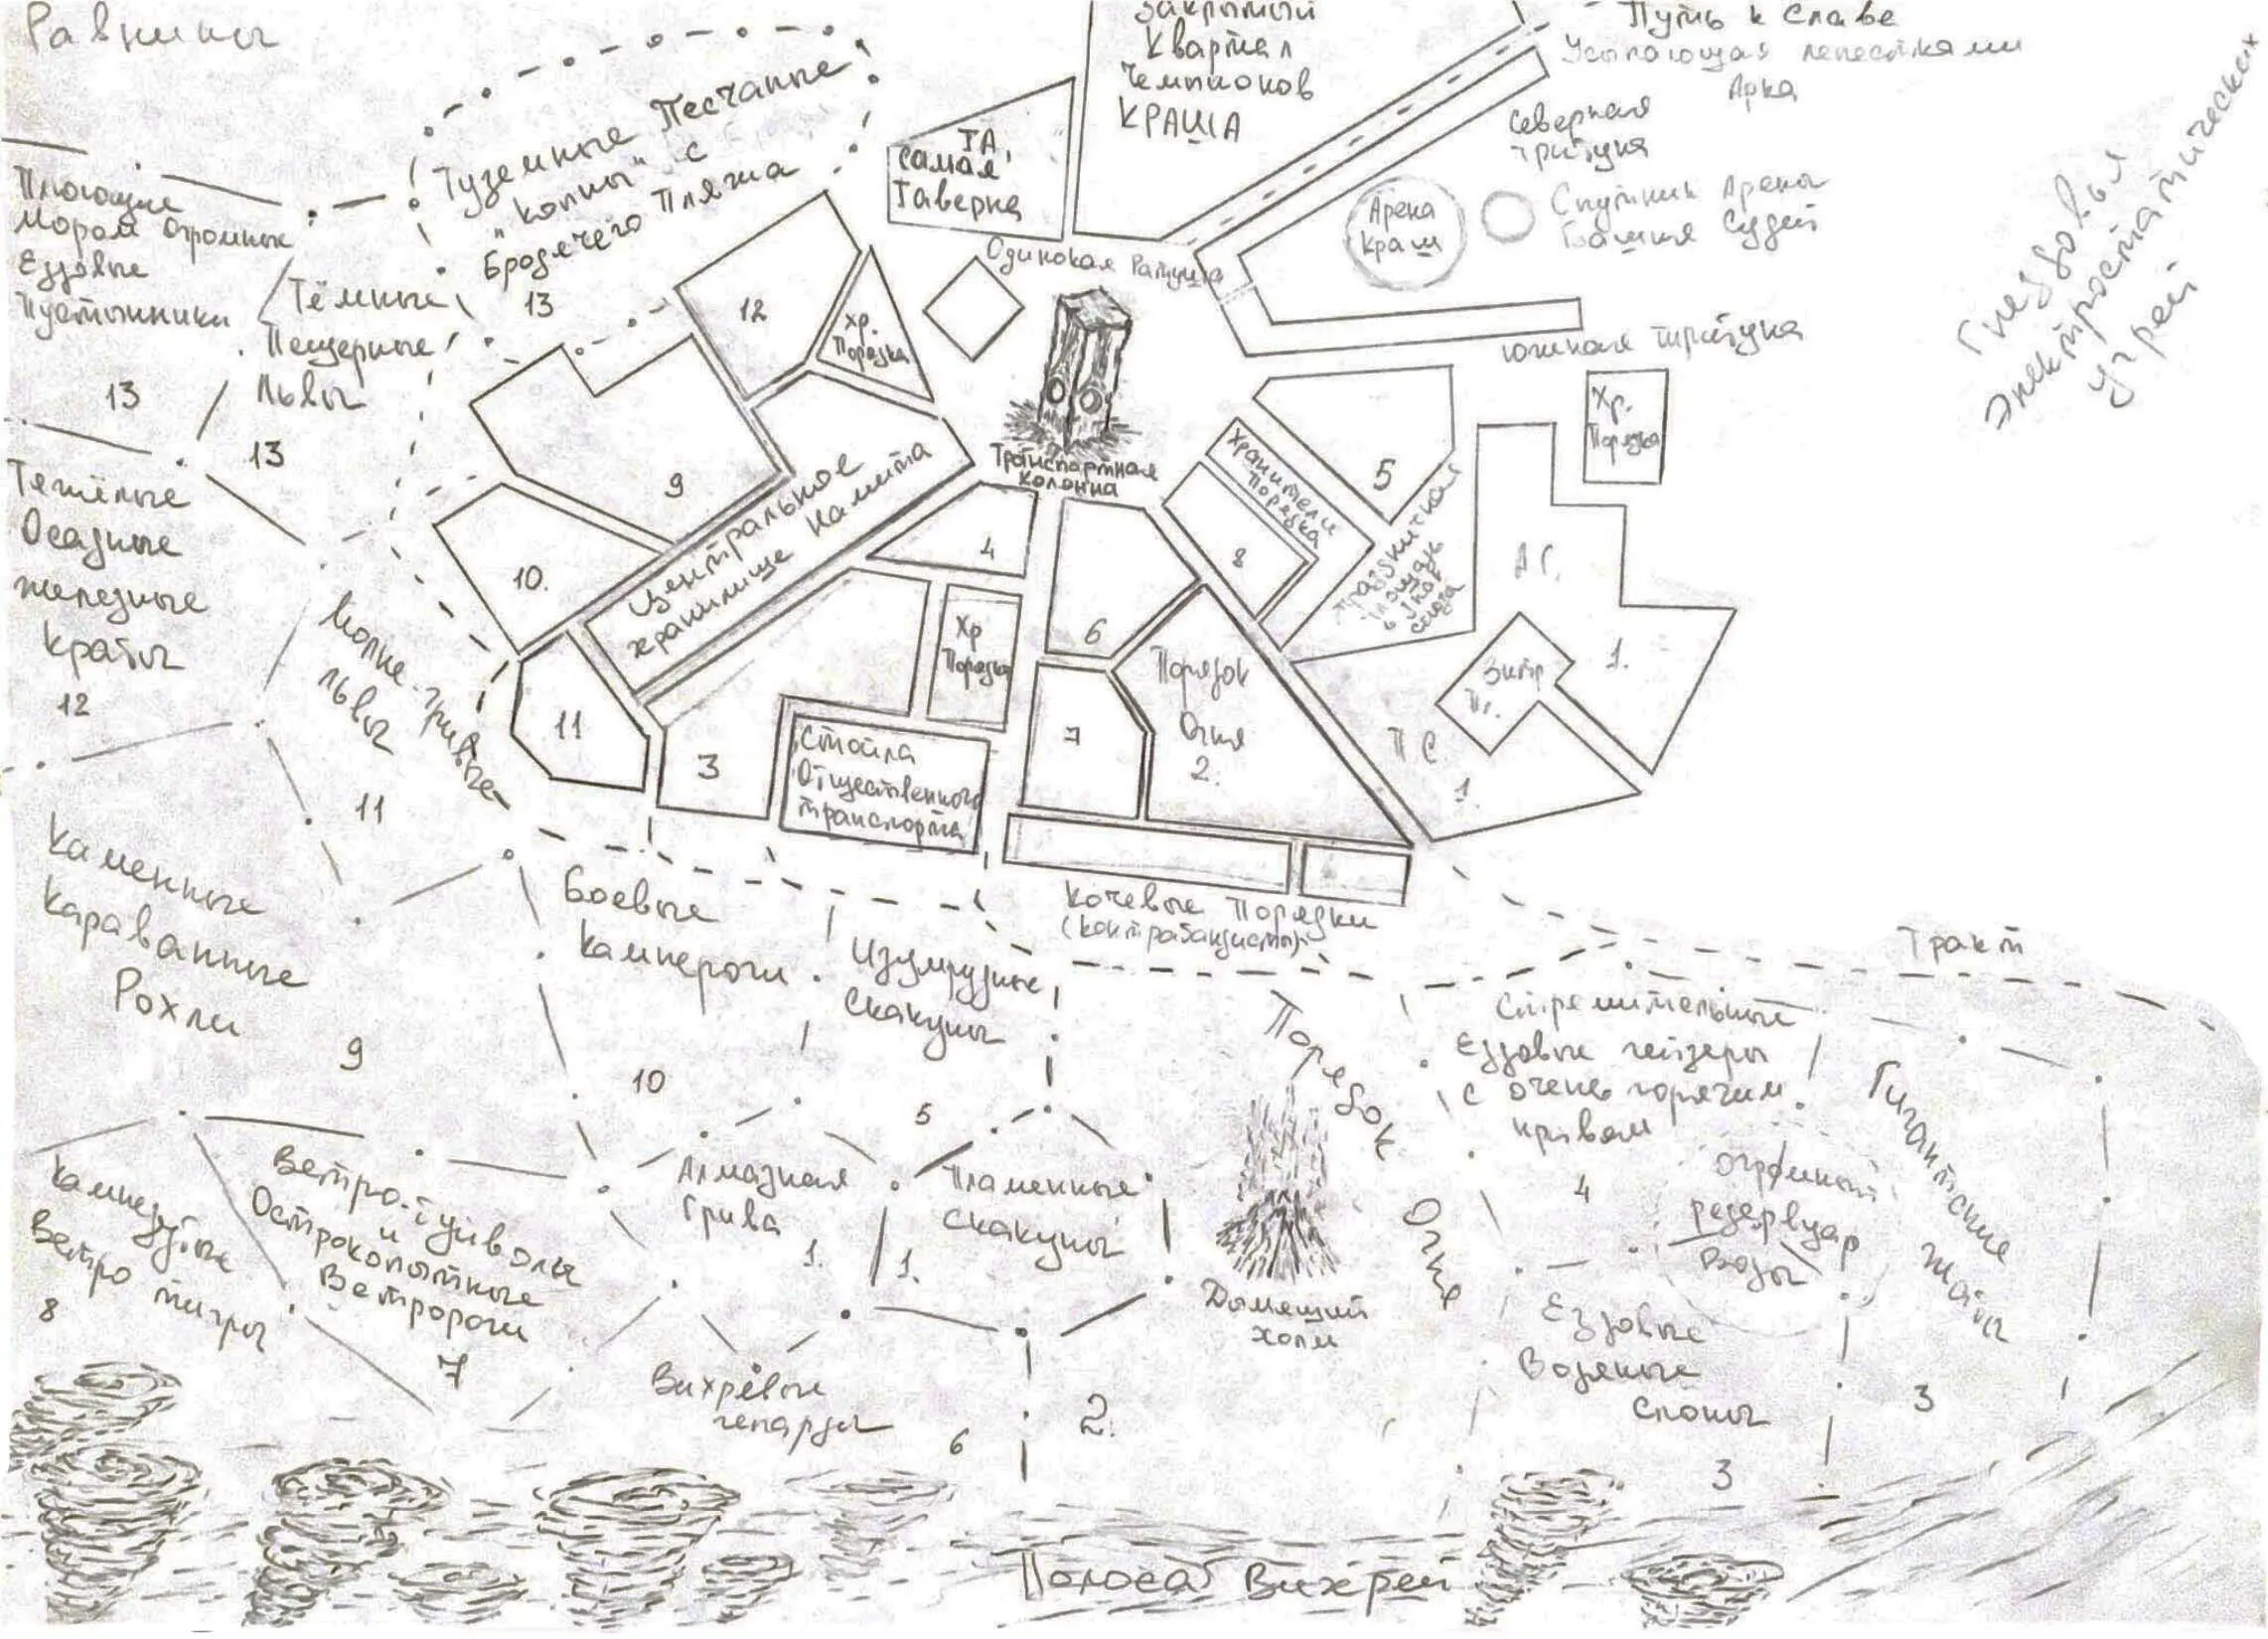 Равнины
Закрытый
Квартал
Чемпионов
КРАША
Путь к Славе
Усыпающая лепестками
Арка
Северная
трибуна
Арена
Краш
Спутник Арены
Башня Судей
Гнездовья
Электростатических
угрей
ТА
самая
Таверна
Туземные Песчаные
"копны" с
Бродячего Пляжа
13
Плюющие
Мором Огромные
Ездовые
Пустынники
13
Тёмные
Пещерные
Львы
13
12
Хр.
Порядка
Одинокая Ратуша
Транспортная
Колонна
Южная трибуна
Хр.
Порядка
5
9
10.
Центральное
хранилище Камита
4
Хранители
Порядка
8
Праздничная
площадь
А Г.
1.
П С
1.
Тяжёлые
Осадные
железные
Крабы
12
Молне-гривые
львы
11
11
3
Хр
Порядка
6
7
Порядок
Огня
2.
Стойла
Общественного
транспорта
Кочевые Порядки
(контрабандисты)
Тракт
Каменные
Караванные
Рохли
9
Боевые
Камнероги
10
Изумрудные
Скакуны
5
Порядок
Огня
Стремительные
Ездовые гейзеры
с очень горячим
нравом
4
Огромный
резервуар
Воды
Гигантские
жабы
3
Камнезубые
Ветро тигры
8
Ветро-буйволы
и
Острокопытные
Ветророги
7
Алмазная
Грива
1.
Пламенные
скакуны
1.
Дымящий
холм
Ездовые
Водяные
Слоны
3
Вихревые
гепарды
6
2.
Полоса Вихрей